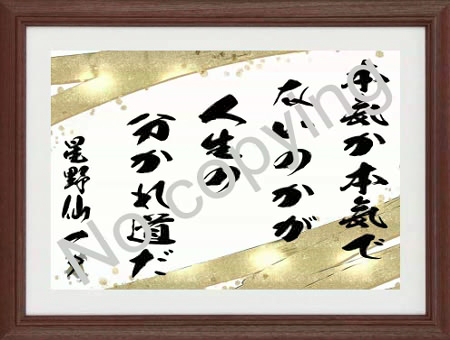 本気か本氣で
ないのかが
人生の
分かれ道だ
星野仙一
No copying